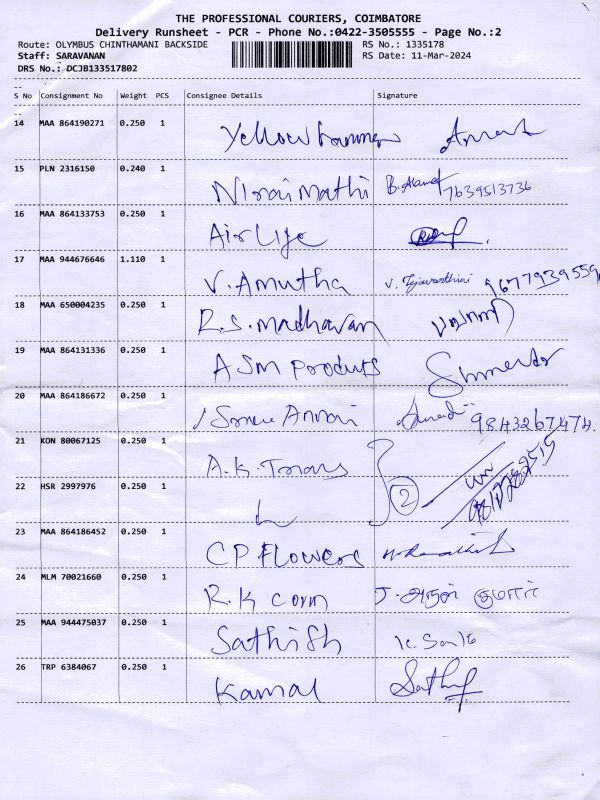 THE PROFESSIONAL COURIERS, COIMBATORE
Delivery Runsheet - PCR - Phone No.:0422-3505555 - Page No.:2
Route: OLYMBUS CHINTHAMANI BACKSIDE RS No.: 1335178
Staff: SARAVANAN RS Date: 11-Mar-2024
DRS No.: DCJB133517802
S No Consignment No Weight PCS Consignee Details Signature
14 MAA 864190271 0.250 1 Yellow hammer
15 PLN 2316150 0.240 1 Niraimathi 7639513736
16 MAA 864133753 0.250 1 Air Life
17 MAA 944676646 1.110 1 V. Amutha V. 9677939559
18 MAA 650004235 0.250 1 R.S. madhavan
19 MAA 864131336 0.250 1 ASM Products
20 MAA 864186672 0.250 1 9843267474.
21 KON 80067125 0.250 1 A.K. 2
22 HSR 2997976 0.250 1
23 MAA 864186452 0.250 1 CP Flowers
24 MLM 70021660 0.250 1 R.K corn J. அருள் குமார்
25 MAA 944475037 0.250 1 Sathish
26 TRP 6384067 0.250 1 Kamal